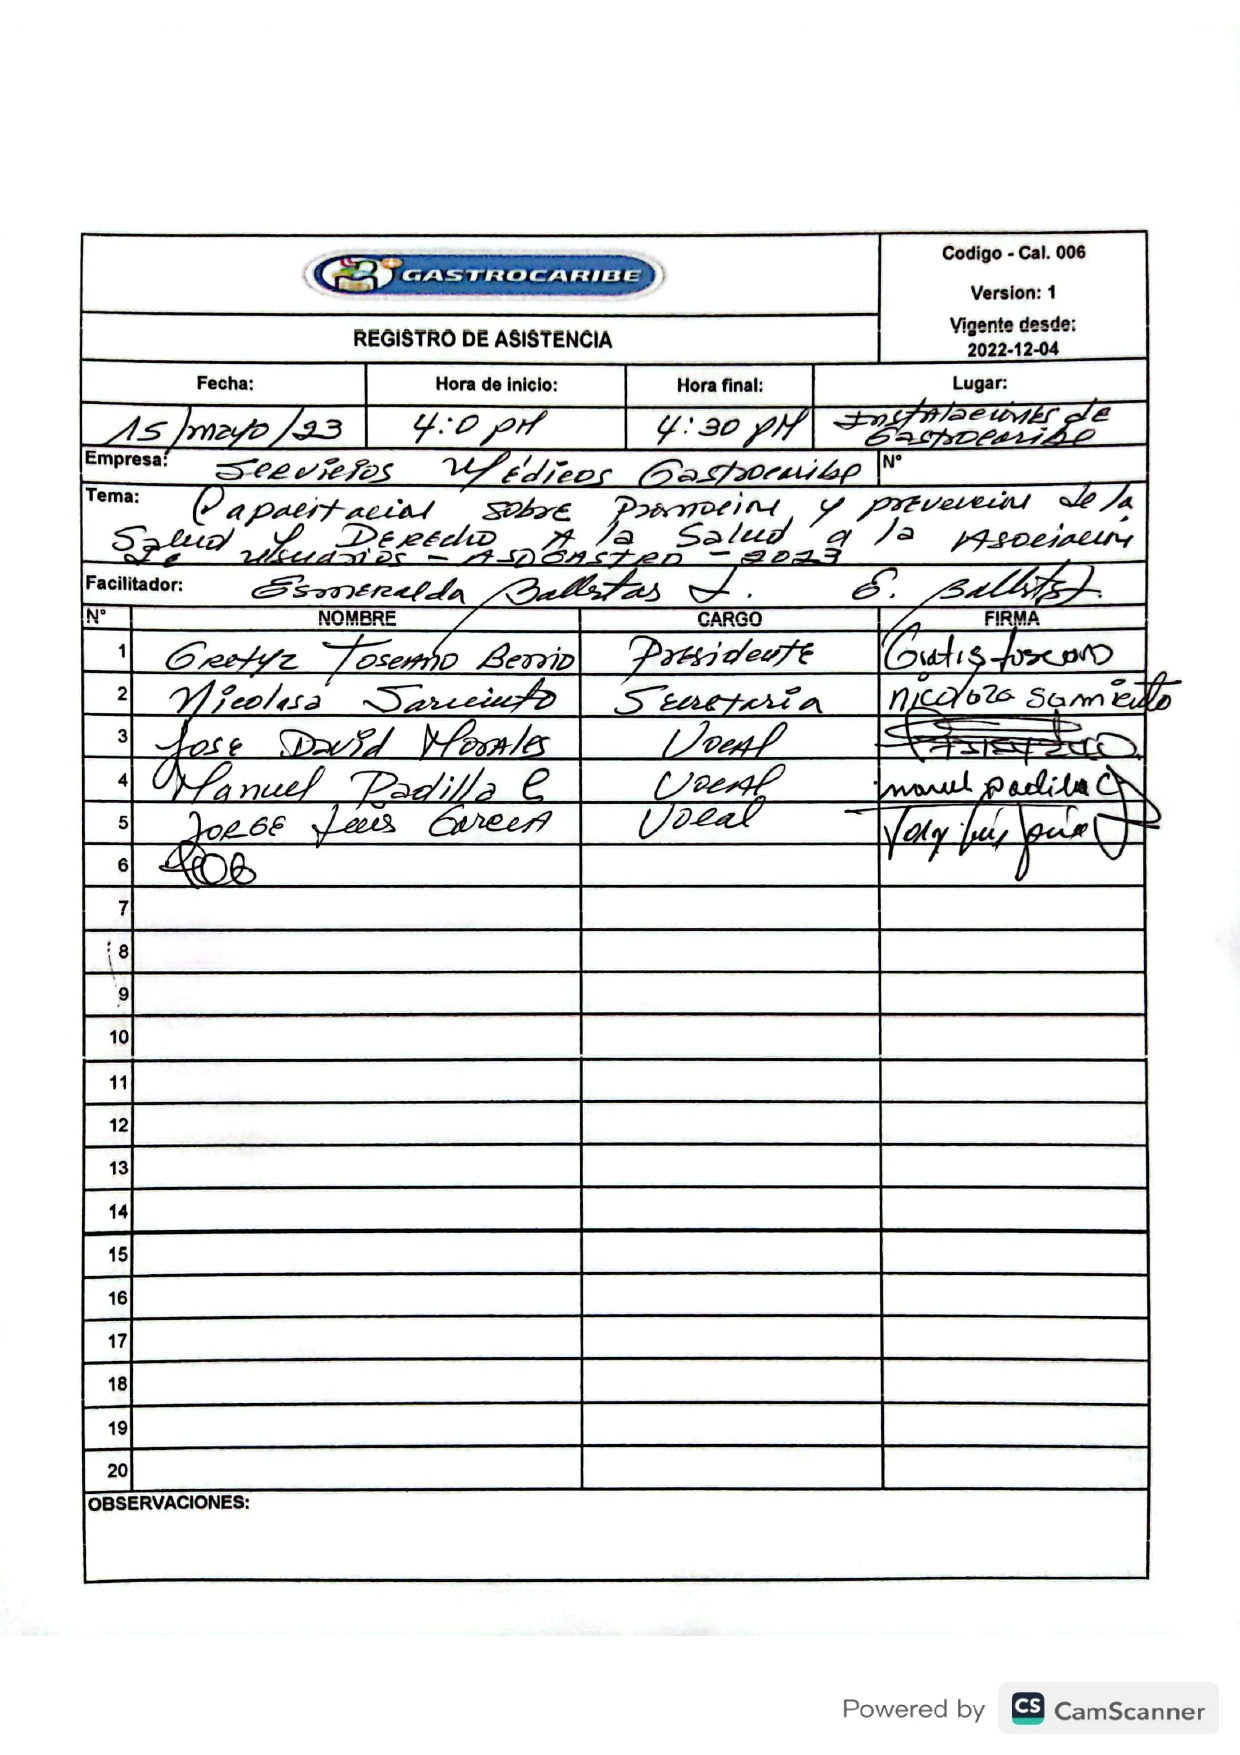 GASTROCARIBE
Codigo - Cal. 006
Version: 1
Vigente desde:
2022-12-04
REGISTRO DE ASISTENCIA
Fecha: Hora de inicio: Hora final: Lugar:
15/mayo/23 4:0 PM 4:30 PM Instalaciones de
Gastrocaribe
Empresa: Servicios Médicos Gastrocaribe N°
Tema: Capacitacion sobre Promocion y prevencion de la
Salud y Derecho A la Salud a la Asociación
De usuarios - ASOGASTRO - 2023
Facilitador: Esmeralda Ballestas J. E. Ballestas J.
N° NOMBRE CARGO FIRMA
1 Toscano Berrio Presidente Toscano
2 Nicolasa Sarmiento Secretaria Nicolasa Sarmiento
3 Jose David Morales Vocal
4 Manuel Padilla C Vocal manuel padilla C
5 JORGE Luis Garcia Vocal Jorge Luis
6
7
8
9
10
11
12
13
14
15
16
17
18
19
20
OBSERVACIONES:
Powered by CS CamScanner